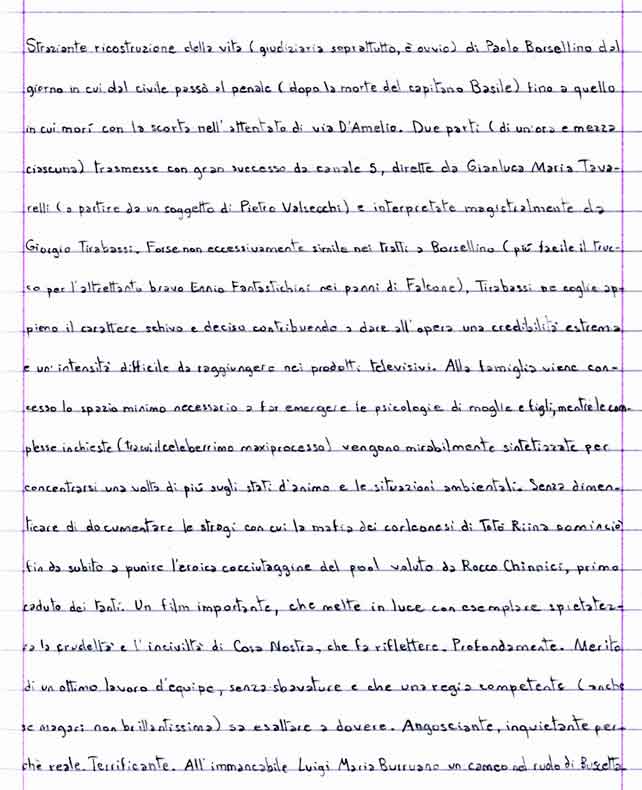 Straziante ricostruzione della vita (giudiziaria soprattutto, è ovvio) di Paolo Borsellino dal
giorno in cui dal civile passò al penale (dopo la morte del capitano Basile) fino a quello
in cui morì con la scorta nell'attentato di via D'Amelio. Due parti (di un'ora e mezza
ciascuna) trasmesse con gran successo da canale 5, dirette da Gianluca Maria Tava-
relli (a partire da un soggetto di Pietro Valsecchi) e interpretate magistralmente da
Giorgio Tirabassi. Forse non eccessivamente simile nei tratti a Borsellino (più facile il truc-
co per l'altrettanto bravo Ennio Fantastichini nei panni di Falcone), Tirabassi ne coglie ap-
pieno il carattere schivo e deciso contribuendo a dare all'opera una credibilità estrema
e un'intensità difficile da raggiungere nei prodotti televisivi. Alla famiglia viene con-
cesso lo spazio minimo necessario a far emergere le psicologie di moglie e figli, mentre le com-
plesse inchieste (tra cui il celeberrimo maxiprocesso) vengono mirabilmente sintetizzate per
concentrarsi una volta di più sugli stati d'animo e le situazioni ambientali. Senza dimen-
ticare di documentare le stragi con cui la mafia dei corleonesi di Totò Riina cominciò
fin da subito a punire l'eroica cocciutaggine del pool voluto da Rocco Chinnici, primo
caduto dei tanti. Un film importante, che mette in luce con esemplare spietatez-
za la crudeltà e l'inciviltà di Cosa Nostra, che fa riflettere. Profondamente. Merito
di un ottimo lavoro d'equipe, senza sbavature e che una regia competente (anche
se magari non brillantissima) sa esaltare a dovere. Angosciante, inquietante per-
chè reale. Terrificante. All'immancabile Luigi Maria Burruano un cameo nel ruolo di Buscetta